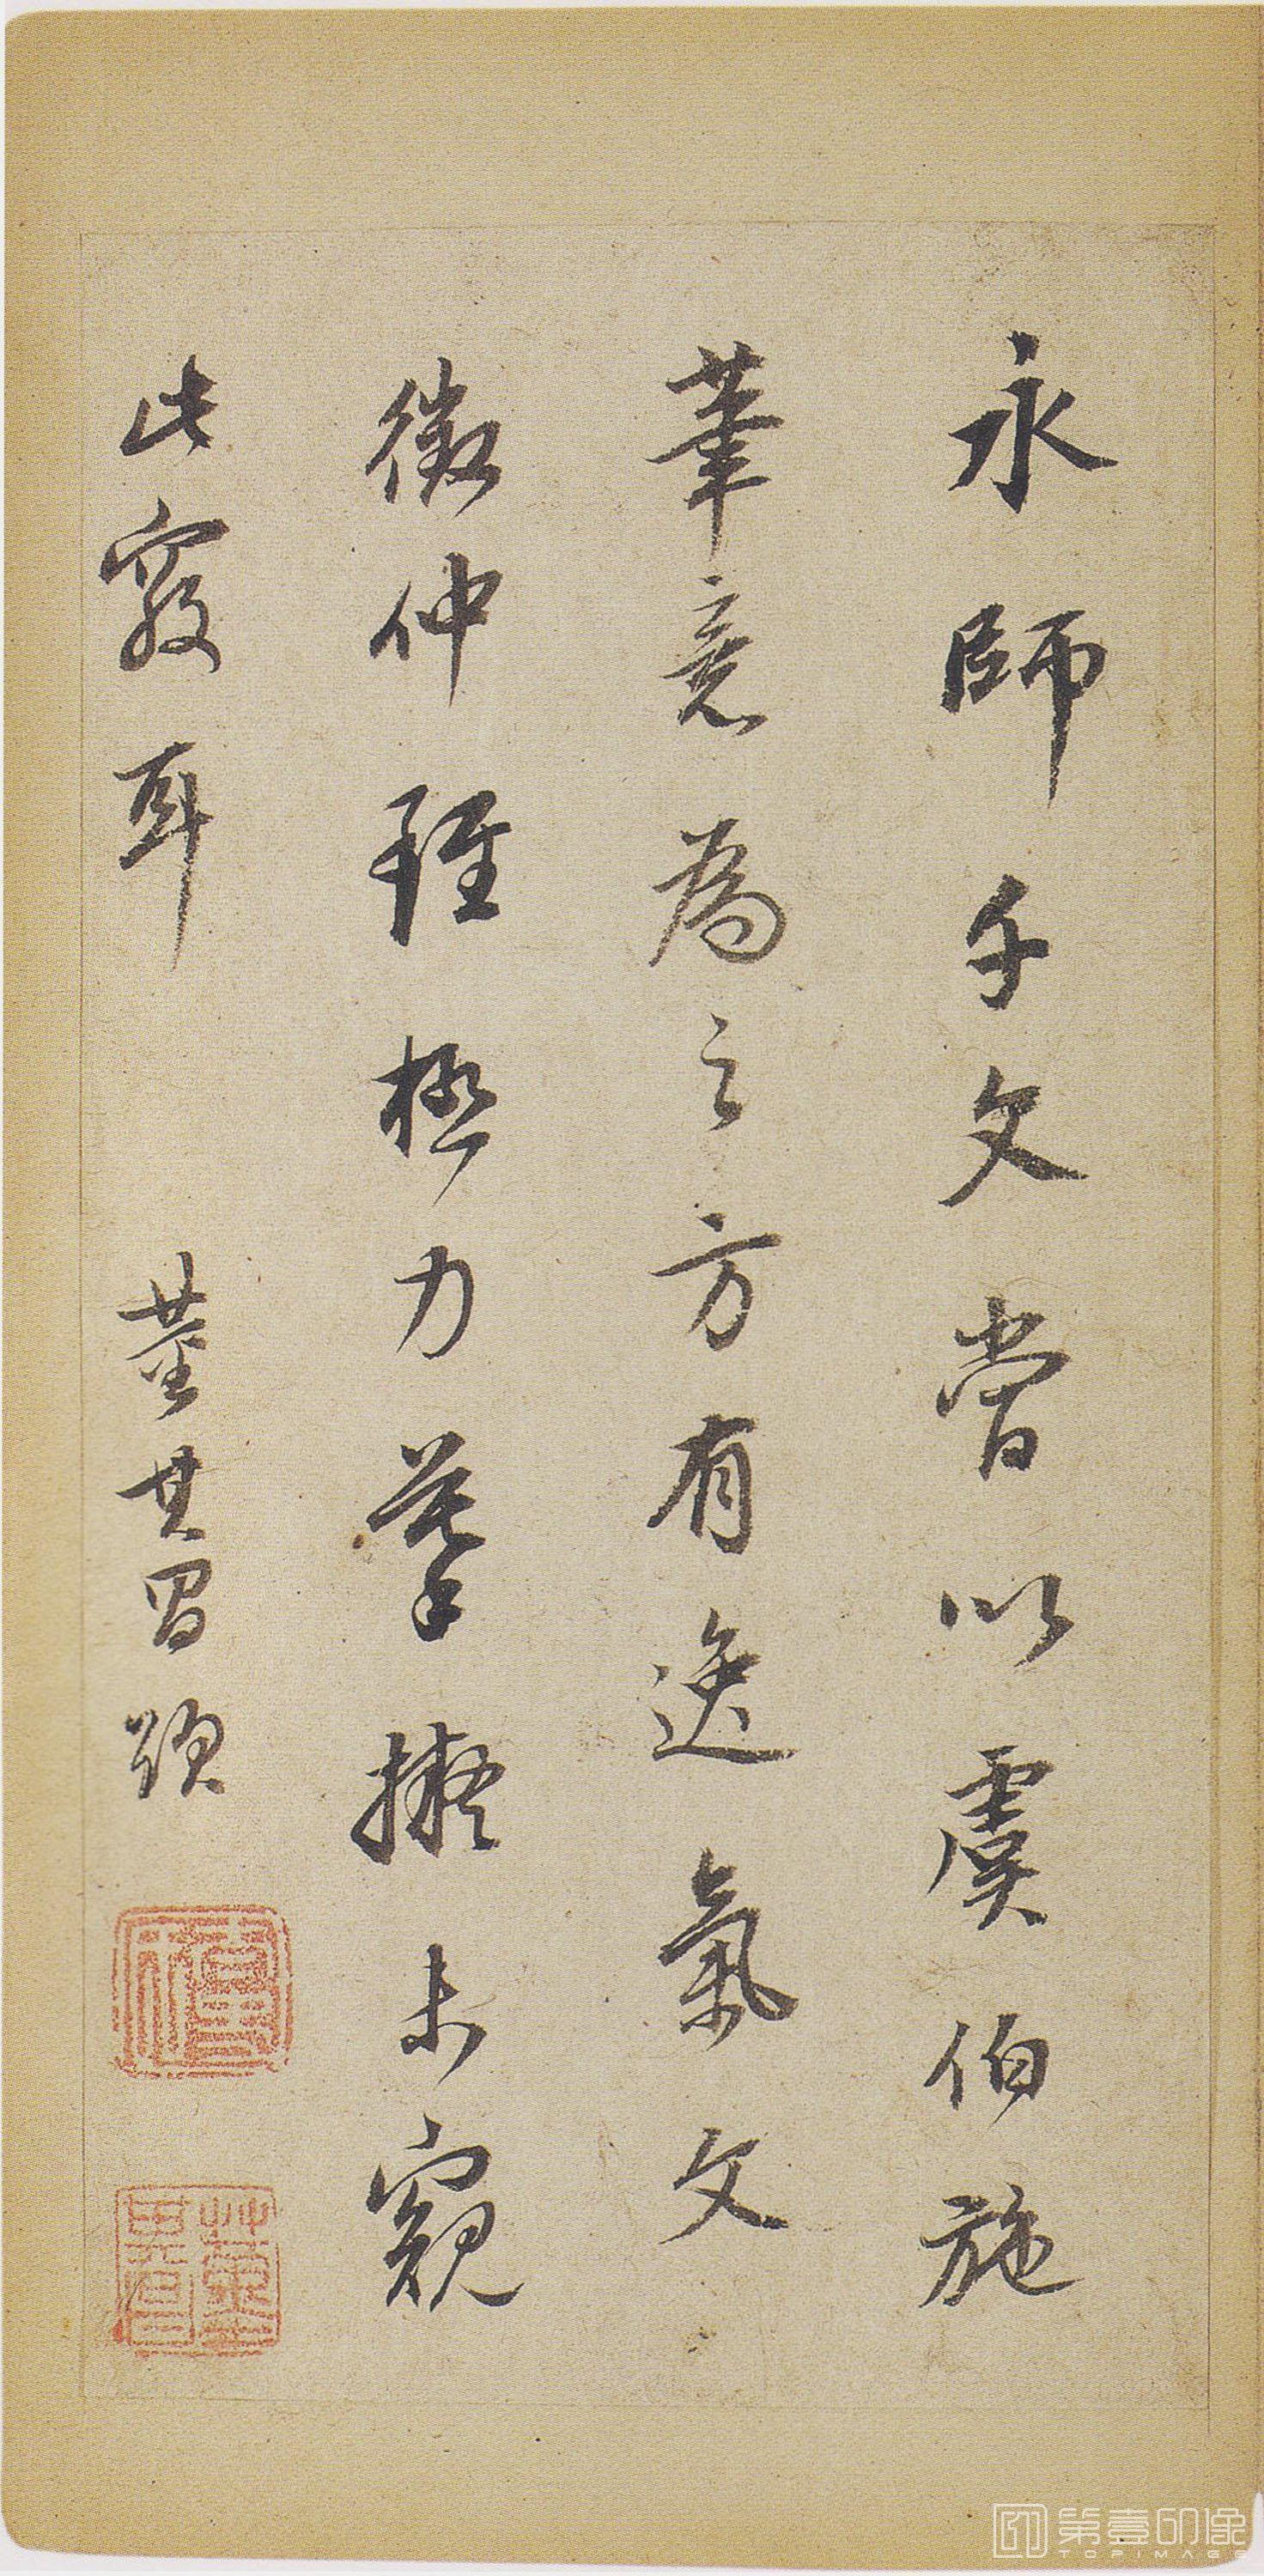 永師千文嘗以虞伯施
筆意為之方有逸氣文
徵仲雖極力摹擬未窺
此竅耳 董其昌題
第壹印像
TOPIMAGE